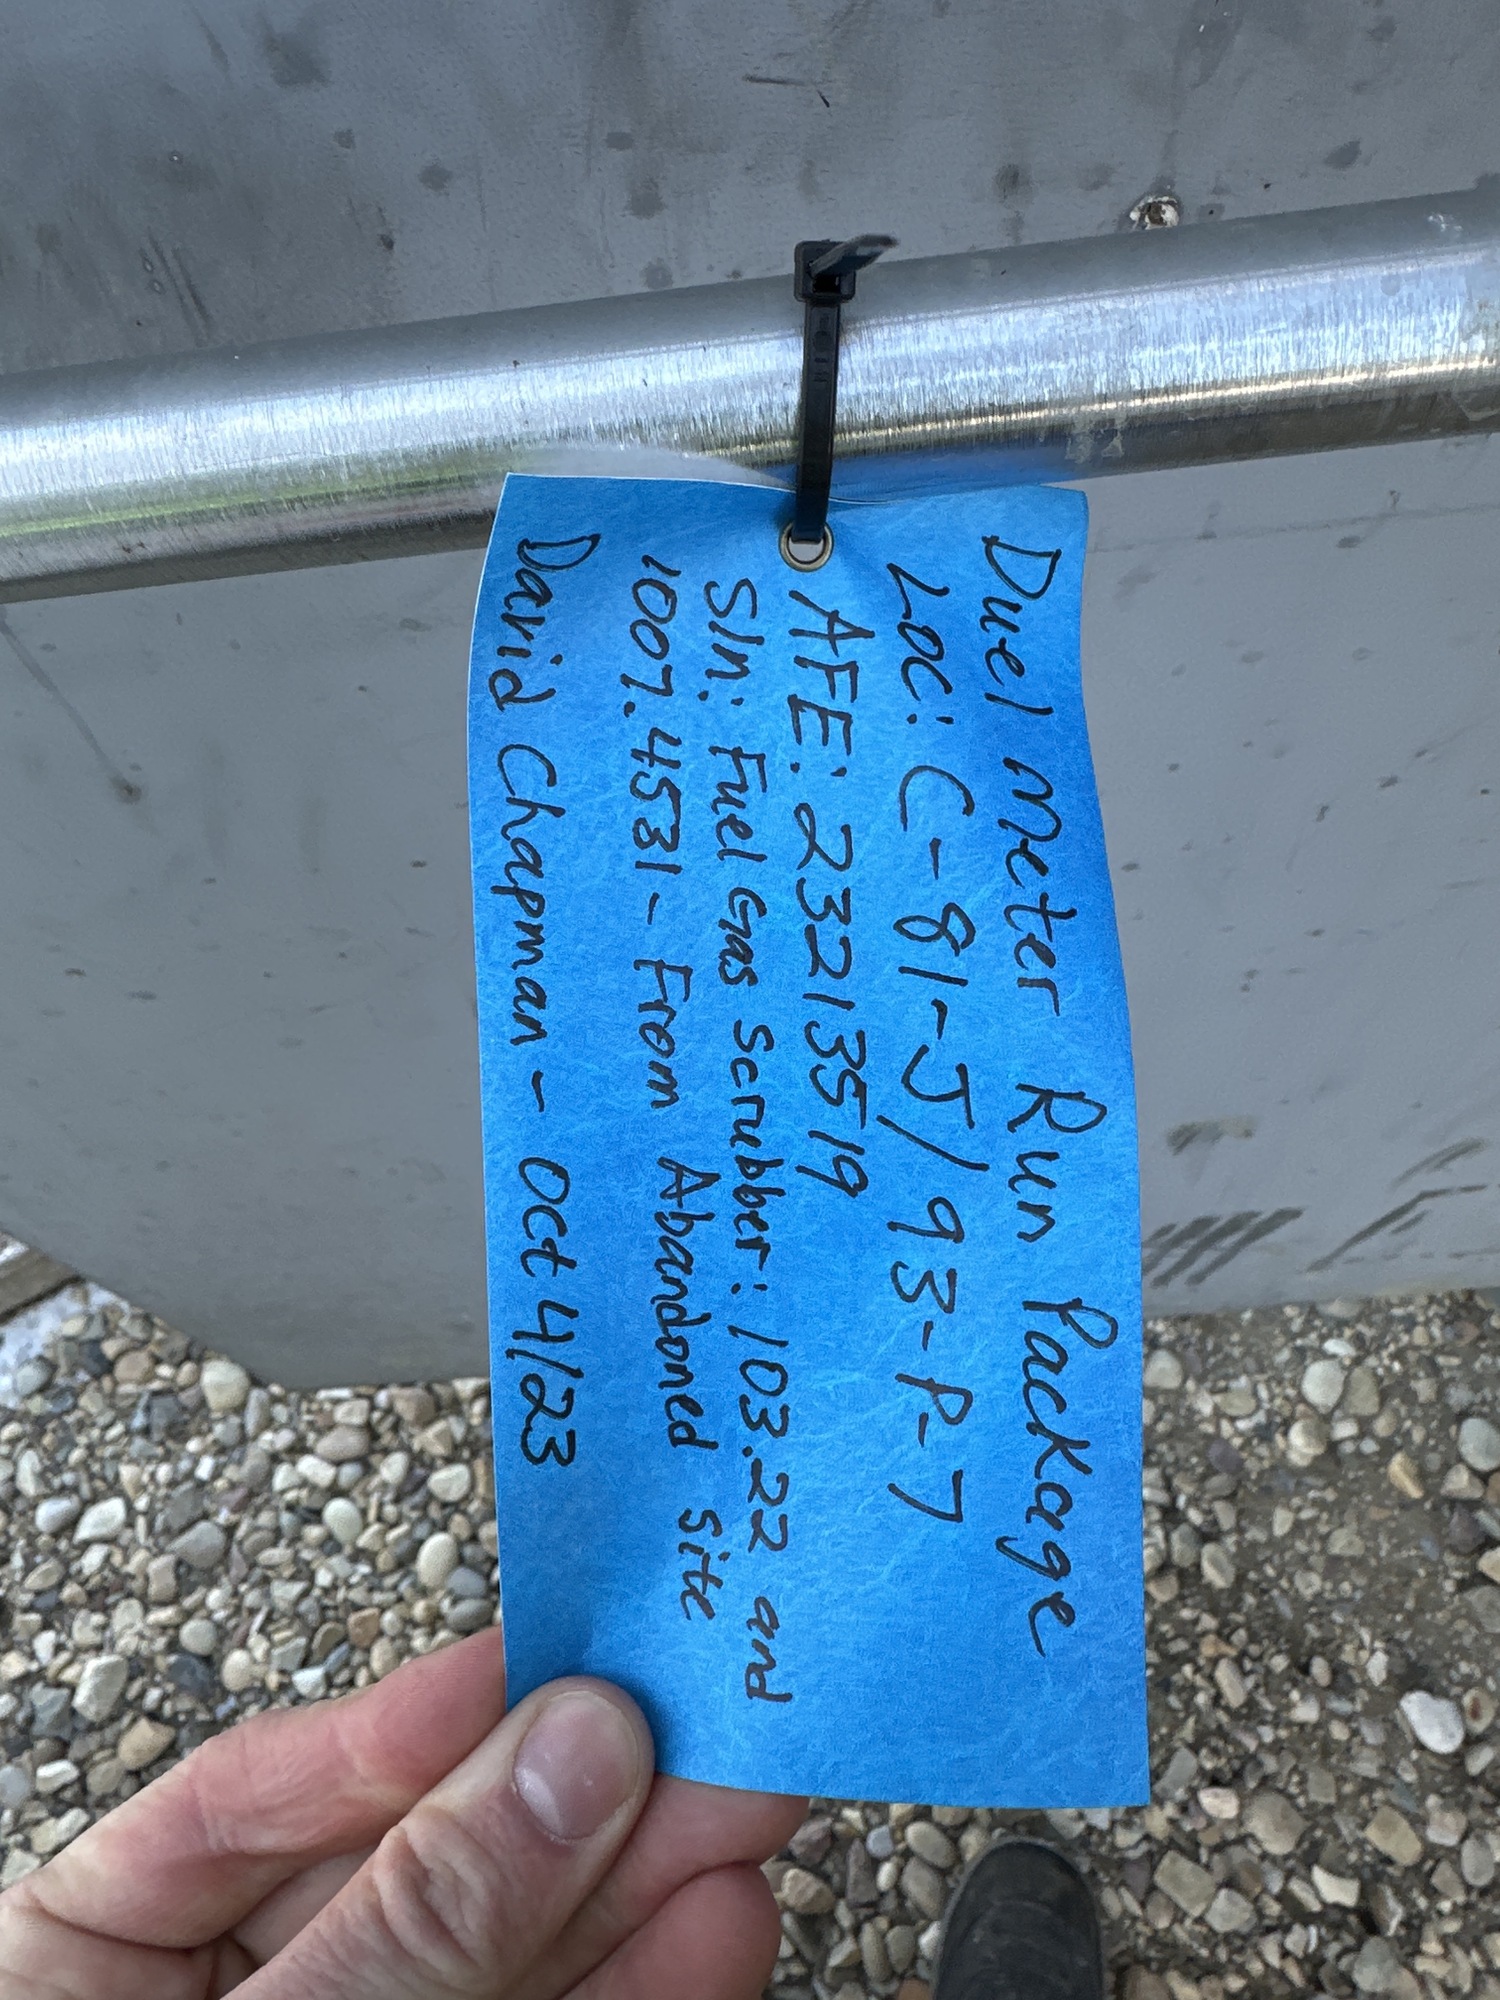 Duel Meter Run Package
Loc: C-81-J/93-P-7
AFE: 23213519
S/n: Fuel Gas scrubber: 103.22 and
1007.4531 - From Abandoned site
David Chapman - Oct 4/23